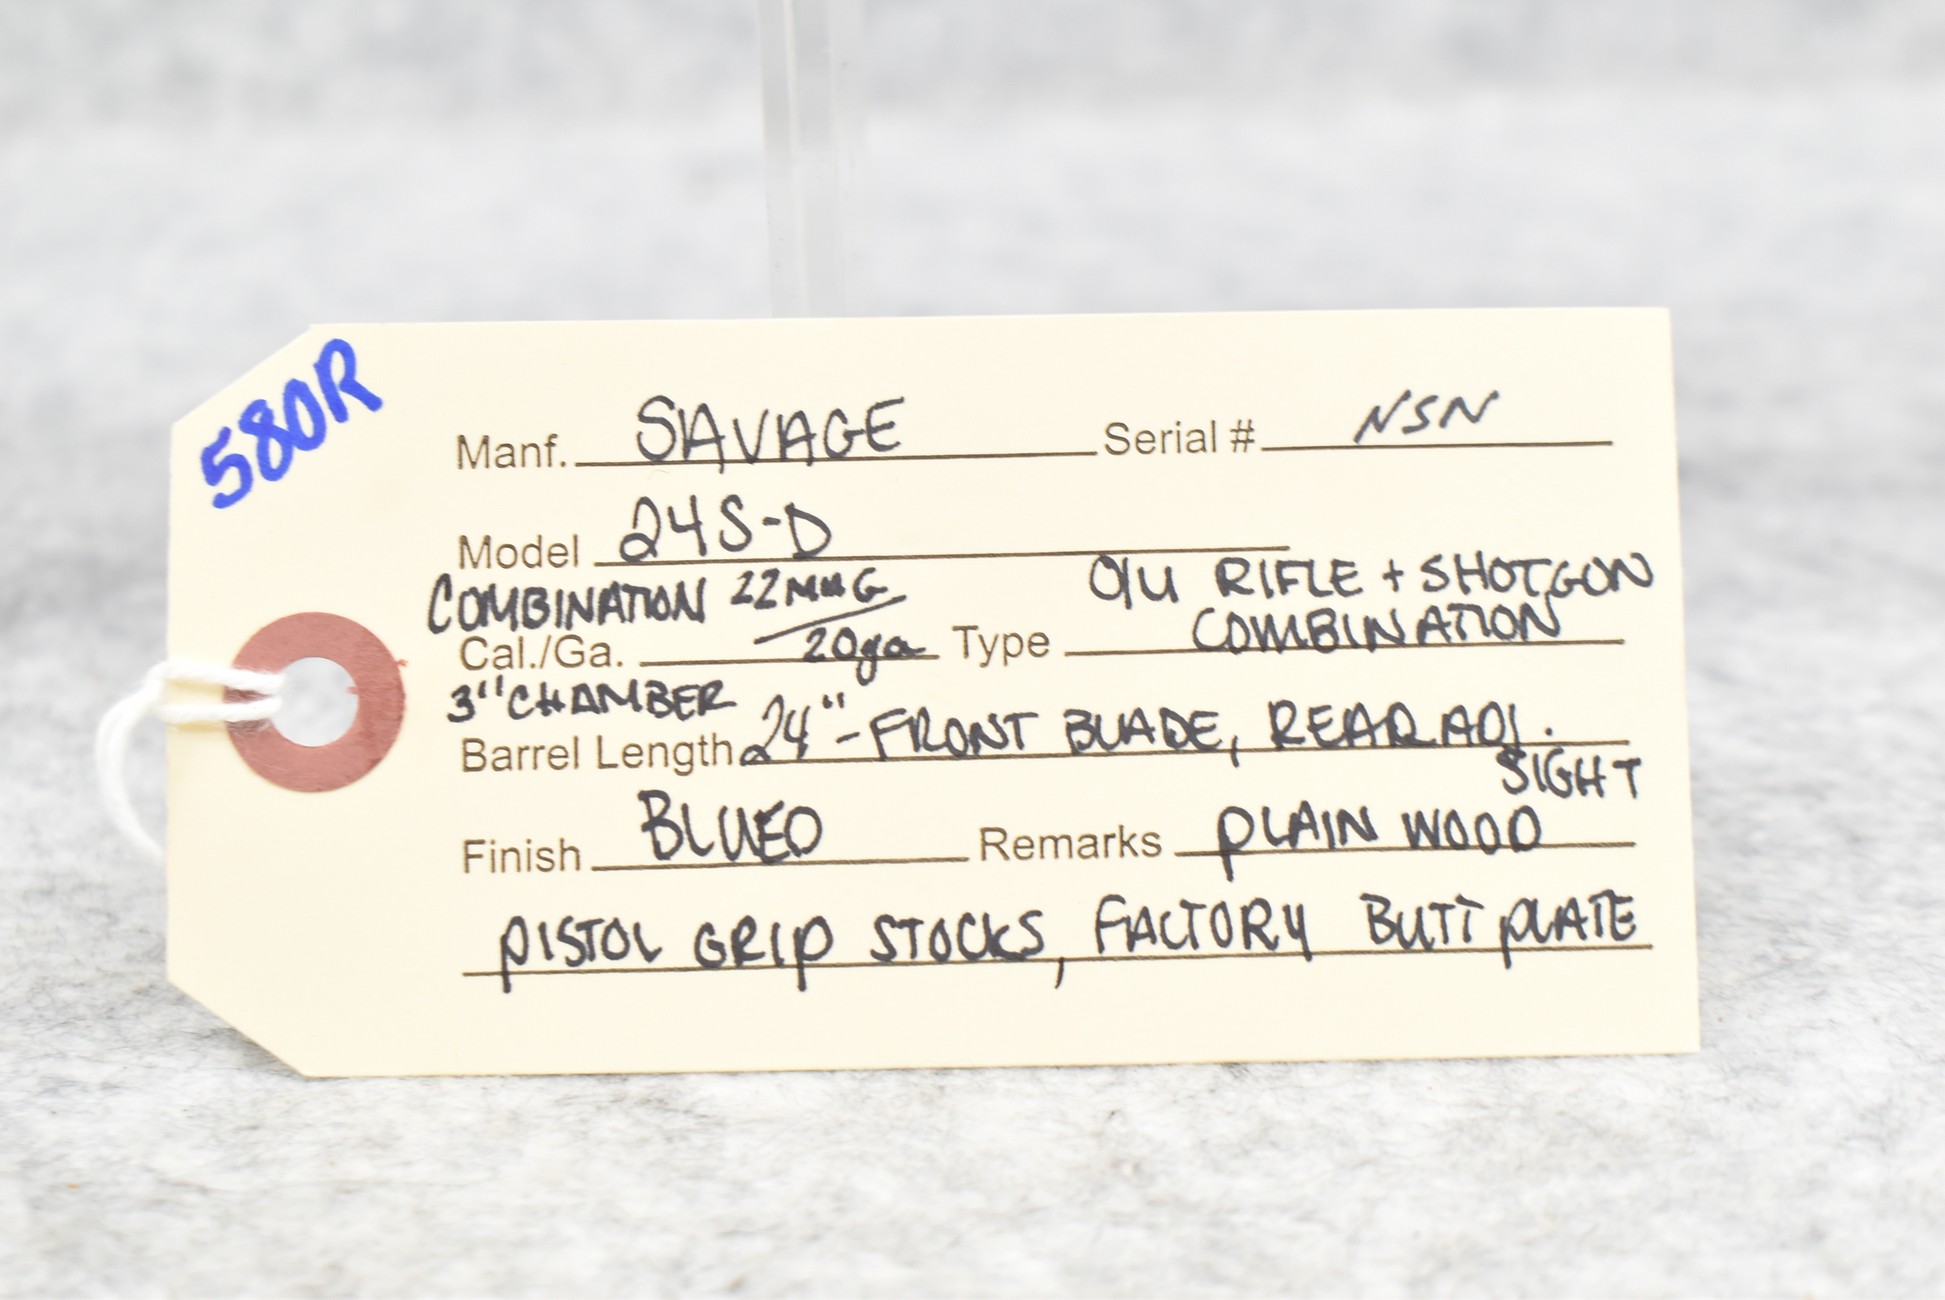 580R
Manf. SAVAGE Serial # NSN
Model 24S-D
COMBINATION 22 MAG O/U RIFLE + SHOTGUN
Cal./Ga. 20ga Type COMBINATION
3" CHAMBER
Barrel Length 24" - FRONT BLADE, REAR ADJ.
SIGHT
Finish BLUED Remarks PLAIN WOOD
PISTOL GRIP STOCKS, FACTORY BUTT PLATE